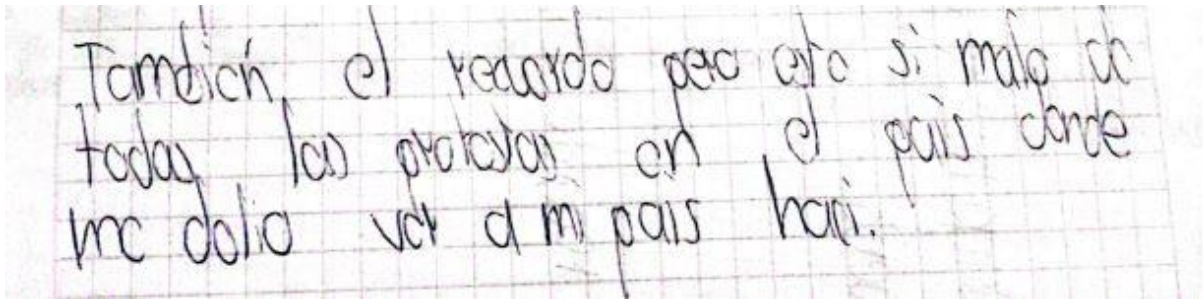 Tambien, el recuerdo pero este si malo de
todas las protestas en el pais donde
me dolio ver a mi pais